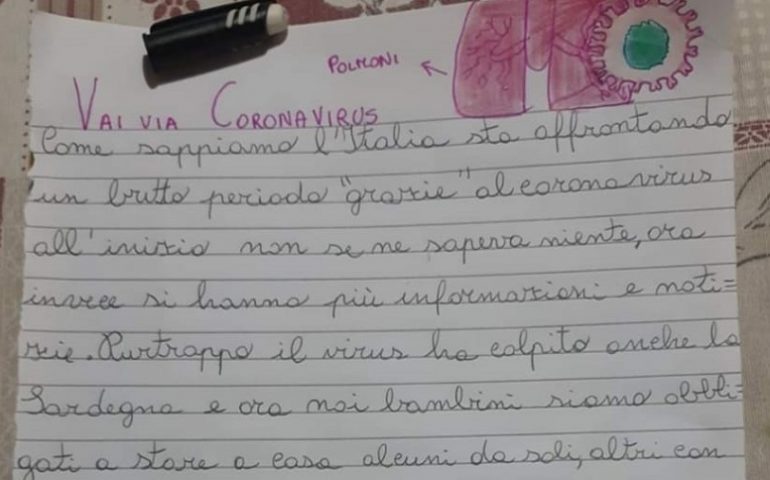 POLMONI
VAI VIA CORONAVIRUS
Come sappiamo l'Italia sta affrontando
un brutto periodo "grazie" al coronavirus
all'inizio non se ne sapeva niente, ora
invece si hanno più informazioni e noti=
zie. Purtroppo il virus ha colpito anche la
Sardegna e ora noi bambini siamo obbli=
gati a stare a casa alcuni da soli, altri con